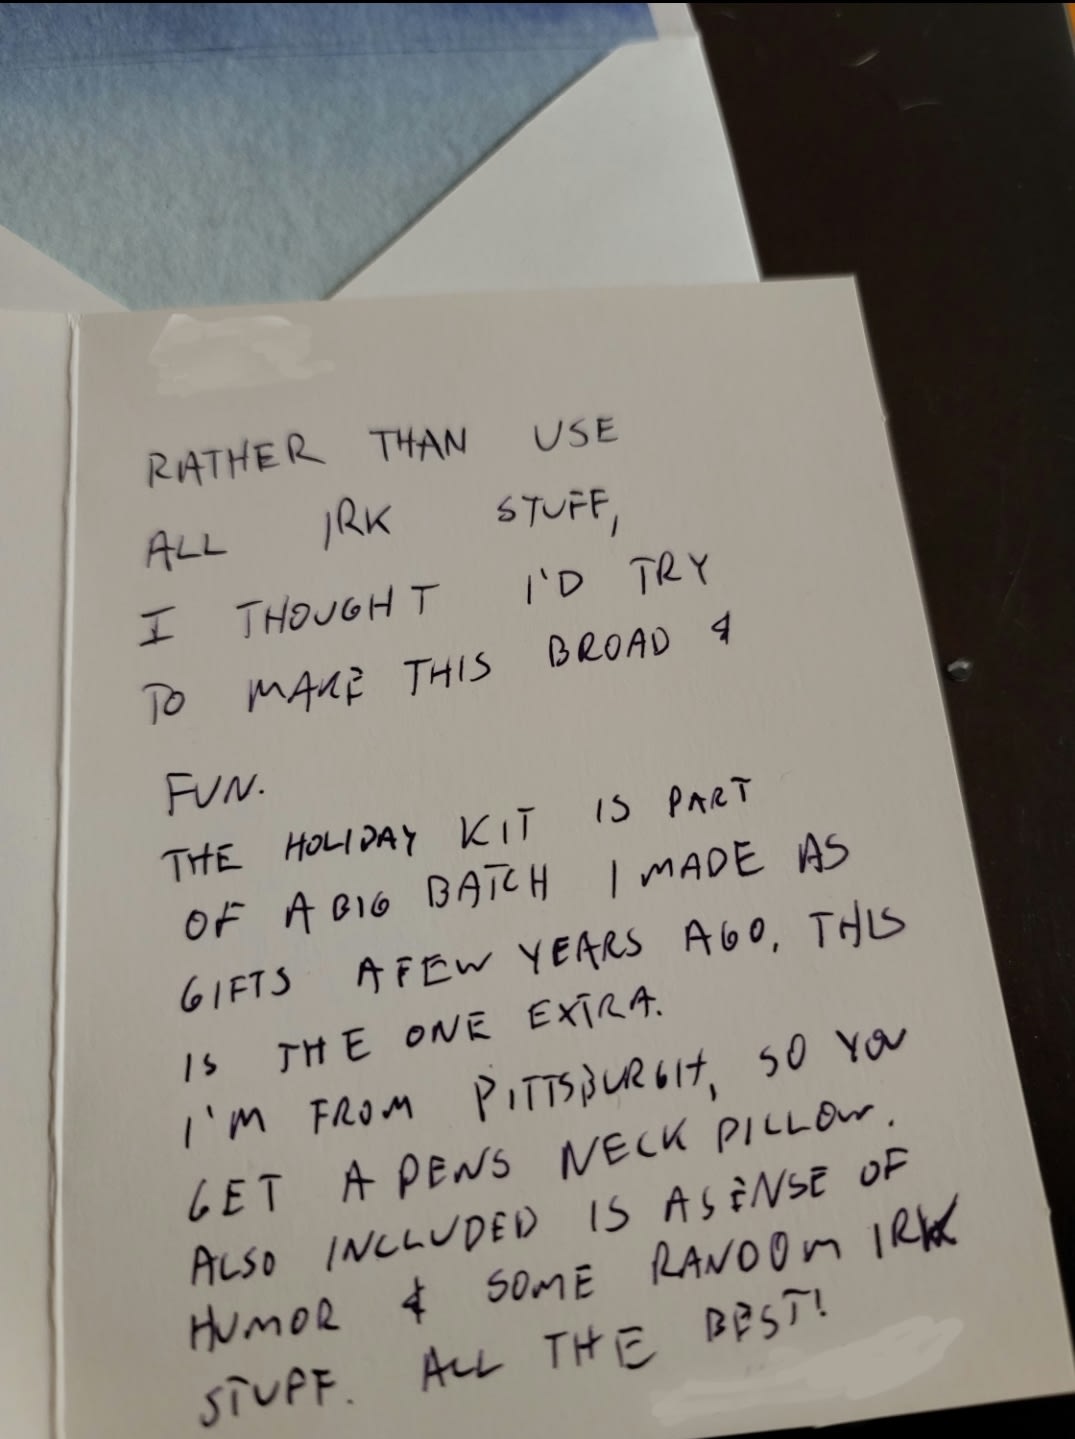 RATHER THAN USE
ALL IRK STUFF,
I THOUGHT I'D TRY
TO MAKE THIS BROAD &
FUN.
THE HOLIDAY KIT IS PART
OF A BIG BATCH I MADE AS
GIFTS A FEW YEARS AGO, THIS
IS THE ONE EXTRA.
I'M FROM PITTSBURGH, SO YOU
GET A PENS NECK PILLOW.
ALSO INCLUDED IS A SENSE OF
HUMOR & SOME RANDOM IRK
STUFF. ALL THE BEST!